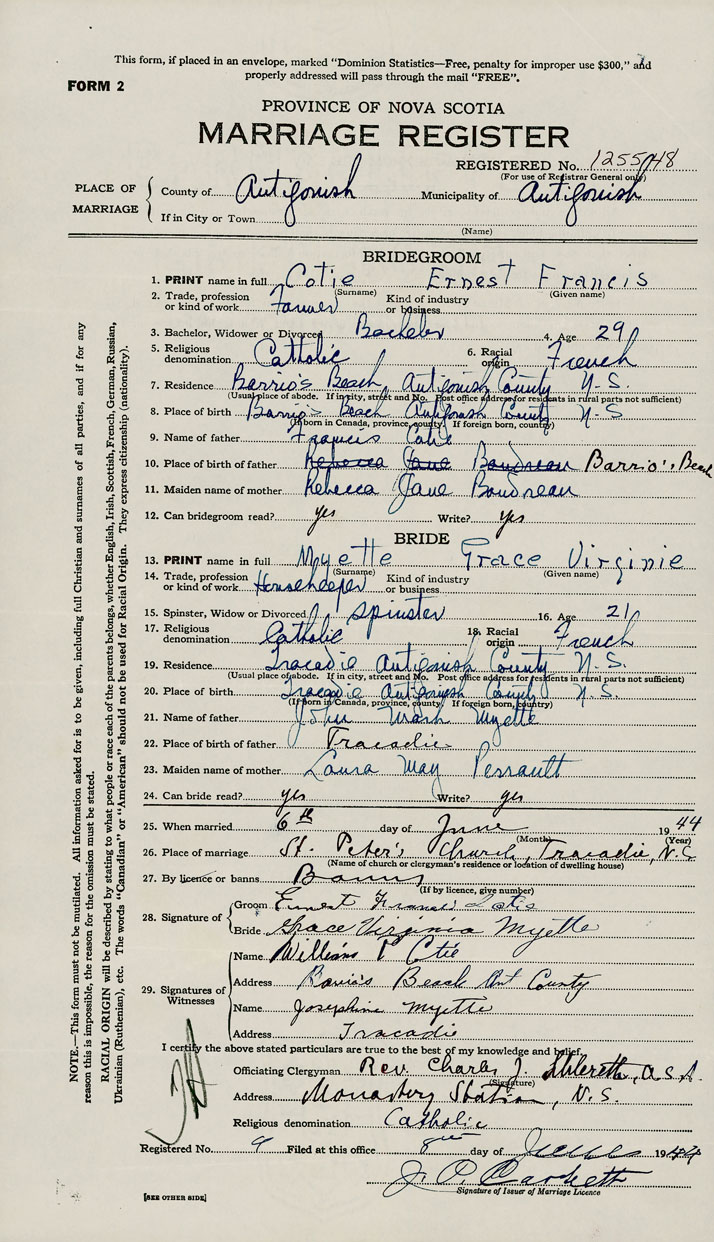 This form, if placed in an envelope, marked "Dominion Statistics—Free, penalty for improper use $300," and
properly addressed will pass through the mail "FREE".
FORM 2
PROVINCE OF NOVA SCOTIA
MARRIAGE REGISTER
REGISTERED No. 1255/48
(For use of Registrar General only)
PLACE OF MARRIAGE
County of Antigonish Municipality of Antigonish
If in City or Town
(Name)
BRIDEGROOM
1. PRINT name in full Cotie Ernest Francis
(Surname) (Given name)
2. Trade, profession or kind of work Farmer Kind of industry or business
3. Bachelor, Widower or Divorced Bachelor 4. Age 29
5. Religious denomination Catholic 6. Racial origin French
7. Residence Barrio's Beach Antigonish County N.S.
(Usual place of abode. If in city, street and No. Post office address for residents in rural parts not sufficient)
8. Place of birth Barrio's Beach Antigonish County N.S
(If born in Canada, province, county. If foreign born, country)
9. Name of father Francis Cotie
10. Place of birth of father Rebecca Jane Boudreau Barrio's Beach
11. Maiden name of mother Rebecca Jane Boudreau
12. Can bridegroom read? yes Write? yes
BRIDE
13. PRINT name in full Myette Grace Virginie
(Surname) (Given name)
14. Trade, profession or kind of work Housekeeper Kind of industry or business
15. Spinster, Widow or Divorced Spinster 16. Age 21
17. Religious denomination Catholic 18. Racial origin French
19. Residence Tracadie Antigonish County N.S.
(Usual place of abode. If in city, street and No. Post office address for residents in rural parts not sufficient)
20. Place of birth Tracadie Antigonish County N.S.
(If born in Canada, province, county. If foreign born, country)
21. Name of father John Myette
22. Place of birth of father Tracadie
23. Maiden name of mother Laura May Perrault
24. Can bride read? yes Write? yes
25. When married 6th day of June 1944
(Month) (Year)
26. Place of marriage St. Peter's Church, Tracadie, N.S
(Name of church or clergyman's residence or location of dwelling house)
27. By licence or banns Banns
(If by licence, give number)
28. Signature of
Groom Ernest Francis Cotie
Bride Grace Virginia Myette
29. Signatures of Witnesses
Name William Cotie
Address Beach Ant County
Name Josephine Myette
Address Tracadie
I certify the above stated particulars are true to the best of my knowledge and belief.
Officiating Clergyman Rev. Charles J. O.S.A.
(Signature)
Address Monastery Station, N.S.
Religious denomination Catholic
Registered No. 9 Filed at this office 8th day of June 1944
J. P.
Signature of Issuer of Marriage Licence
[SEE OTHER SIDE]
NOTE.—This form must not be mutilated. All information asked for is to be given, including full Christian and surnames of all parties, and if for any
reason this is impossible, the reason for the omission must be stated.
RACIAL ORIGIN will be described by stating to what people or race each of the parents belongs, whether English, Irish, Scottish, French, German, Russian,
Ukrainian (Ruthenian), etc. The words "Canadian" or "American" should not be used for Racial Origin. They express citizenship (nationality).